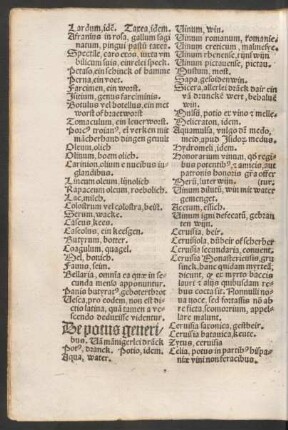 Lardum, idē. Taxea, idem.
Afranius in rosa, gallum sagi
natum, pingui pastū taxea.
Spectile, caro
bilicum suis, ein vlei speck.
Petaso, ein schinck of hamme
Perna, ein voet.
Farcimen, ein worst.
Hietium, genus farciminis.
Botulus vel botellus, ein met
worst of braetworst
Tomaculum, ein leuerworst.
Porcꝰ troianꝰ, ei verken mit
mācherhand dingen geuult
Oleum, olich
Olinum, boem olich.
Carinion, olium e nucibus iu
glandibus.
Lineum oleum, lijnolich
Rapaceum oleum, roebolich.
Lac, milch.
Colostrum vel colostra, beist.
Serum, wacke.
Caseus, kees.
Caseolus, ein keesgen.
Butyrum, botter.
Coagulum, quagel.
Mel, honich.
Fauus, seim.
Bellaria, omnia ea quæ in se
cunda mensa apponuntur.
Panis butyratꝰ, geboterbroet
Vesca, pro eodem, non est di
ctio latina, quā tamen a ve
scendo deduxisse videntur.
De potus generi-
bus. Uā mānigerlei drāck
Potꝰ, dranck. Potio, idem.
Aqua, water.
Vinum, win.
Vinum romanum, romanie.
Vinum creticum, malmesye.
Vinum rhenense, rijnswijn
Vinum pictauense, pictau.
Mustum, most.
Sapa, gesodenwin.
Sicera, allerlei drāck dair ein
vā druncke wert, behaluē
win.
Mulsū, potio ex vino et melle
Melicratum, idem.
Aquamulsa, vulgo dnꝰ medo,
meid, apud Isidorū medus.
Hydromeli, idem.
Honorarium vinum, qd regi
bus potentibꝰ, amicis, aut
patronis honoris gratia offer
Merū, luter win. (tur.
Vinum dilutū, wij mit water
gemenget.
Acetum, essich.
Vinum igni defecatū, gebran
ten wijn.
Ceruisia, beir.
Ceruisiola, dūbeir of scherber
Ceruisia secundaria, conuent.
Ceruisia Monasteriensis, gru
sinck, hanc quidam myrteū
dicunt, quod ex myrto baccis
lauri et alijs quibusdam re
bus cocta sit. Nonnulli noua
uoce, sed fortassis nō ab
re ficta, sconteum, appel-
lare malunt.
Ceruisia saxonica, geilbeir.
Ceruisia batauica, keute.
Zytus, ceruisia
Celia, potus in partibꝰ hispa-
niæ vini non feracibus.